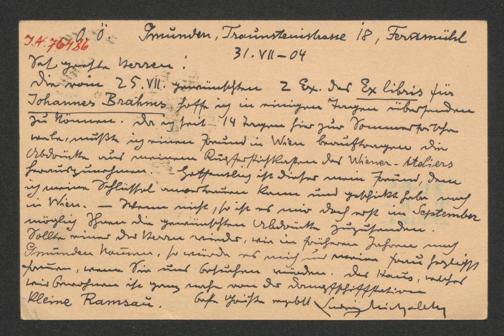 O. Ö. Gmunden, Traunsteinstrasse 18, Fernmühl
I.N. 76486
31. VII - 04
Sehr geehrte Herren!
die vom 25. VII. gewünschten 2 Ex. des Ex libris für
Johannes Brahms hoffe ich in einigen Tagen übersenden
zu können. Da ich seit 14 Tagen hier zur Sommerfrische
weile, mußte ich einen Freund in Wien beauftragen die
Abdrucke aus meinem Kupferstichkasten des Wiener-Ateliers
herauszunehmen. Hoffentlich ist dieser mein Freund, dem
ich meinen Schlüssel anvertrauen kann und geschickt habe noch
in Wien. — Wenn nicht, so ist es mir doch erst im September
möglich Ihnen die gewünschten Abdrucke zuzusenden.
Sollte einer der Herren wieder, wie in früheren Jahren nach
Gmunden kommen, so würde es mich und meine Frau herzlichst
freuen, wenn Sie uns besuchen würden. Das Haus, welches
wir bewohnen ist ganz nahe von der Dampfschiffstation
Kleine Ramsau. beste Grüsse ergebenst Ludwig Michalek